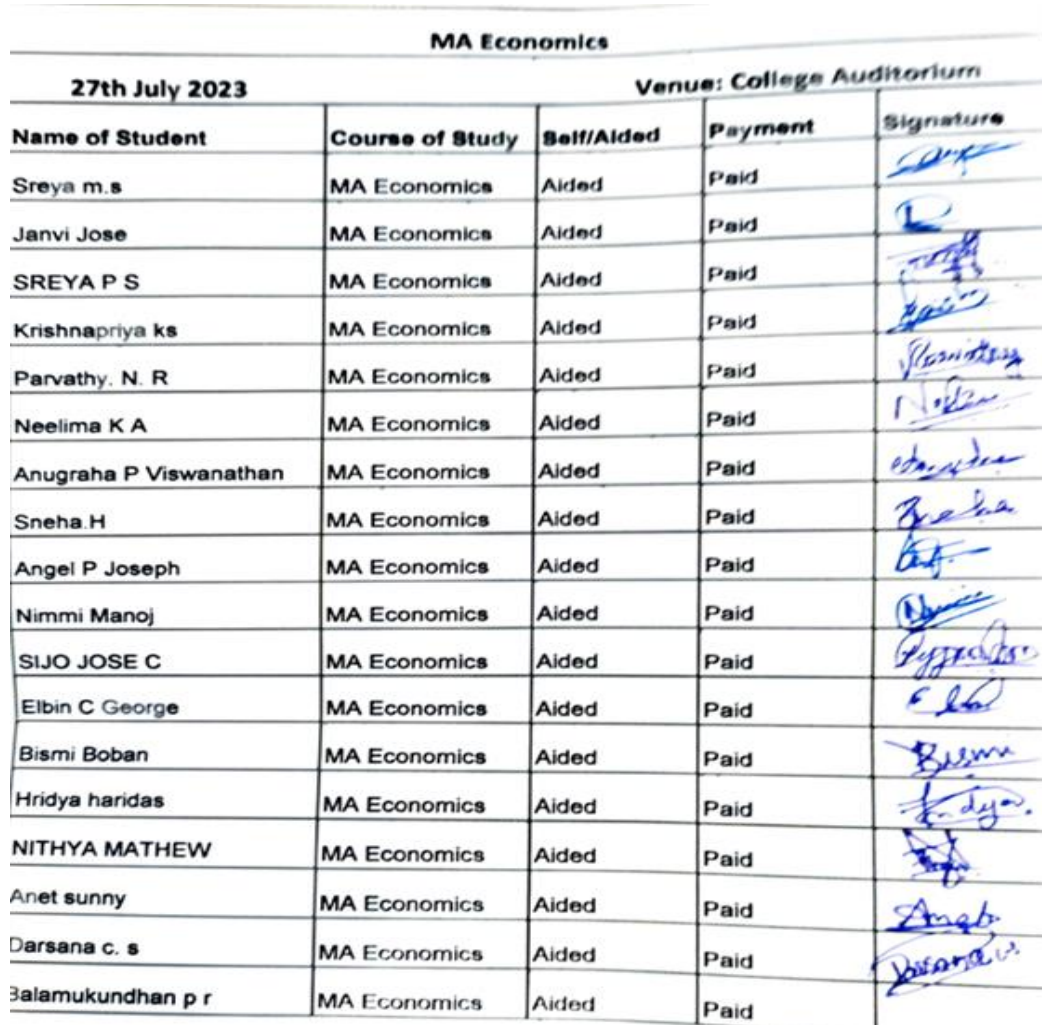 MA Economics
27th July 2023 Venue: College Auditorium
Name of Student Course of Study Self/Aided Payment Signature
Sreya m.s MA Economics Aided Paid
Janvi Jose MA Economics Aided Paid
SREYA P S MA Economics Aided Paid
Krishnapriya ks MA Economics Aided Paid
Parvathy. N. R MA Economics Aided Paid
Neelima K A MA Economics Aided Paid
Anugraha P Viswanathan MA Economics Aided Paid
Sneha.H MA Economics Aided Paid Sneha
Angel P Joseph MA Economics Aided Paid
Nimmi Manoj MA Economics Aided Paid
SIJO JOSE C MA Economics Aided Paid
Elbin C George MA Economics Aided Paid
Bismi Boban MA Economics Aided Paid Bismi
Hridya haridas MA Economics Aided Paid
NITHYA MATHEW MA Economics Aided Paid
Anet sunny MA Economics Aided Paid Anet
Darsana c. s MA Economics Aided Paid
Balamukundhan p r MA Economics Aided Paid